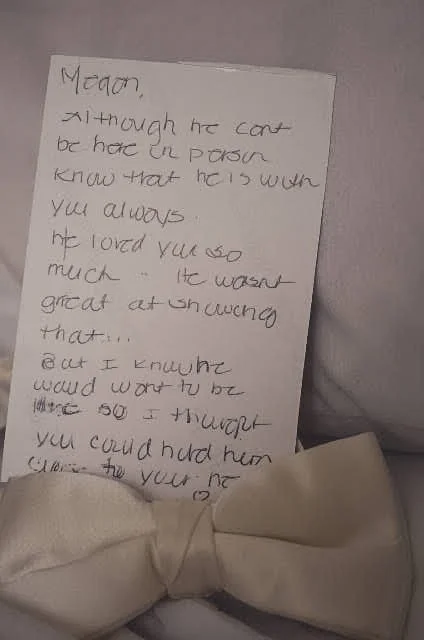 Megan,
Although he cant
be here in person
know that he is with
you always.
He loved you so
much .. He wasnt
great at showing
that...
But I know he
would want to be
so I thought
you could hold him
to your he